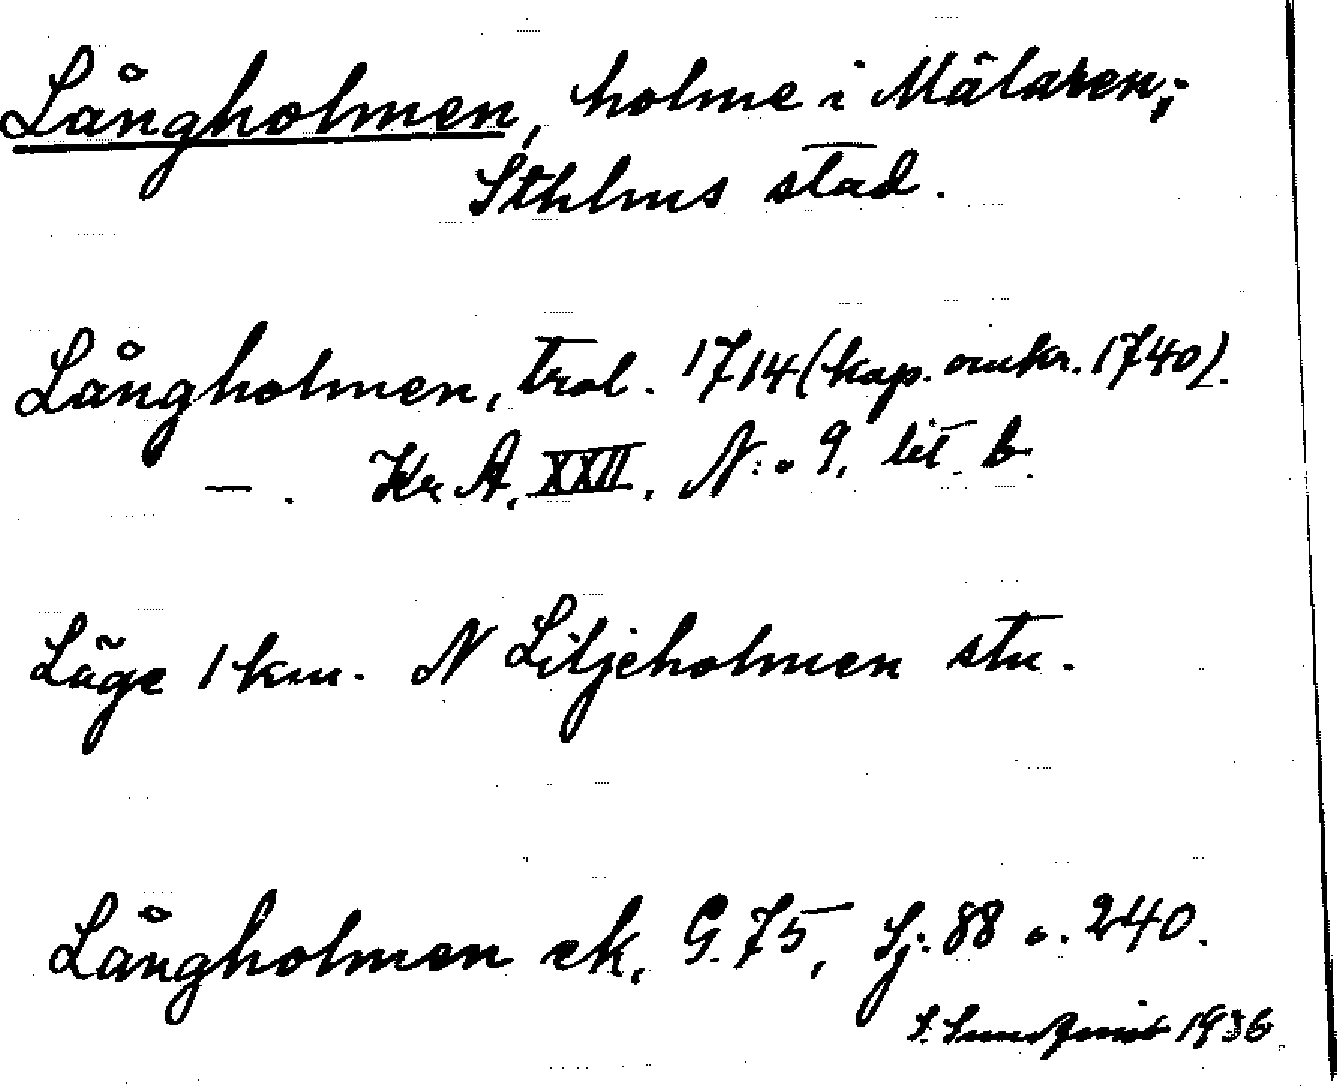 Långholmen, holme i Mälaren;
Sthlms stad.
Långholmen, trol. 1714 (kop. omkr. 1740).
— . Kr. A. XXII. N:o 9, lit. b.
Läge 1 km. N Liljeholmen stn.
Långholmen ek. G. 75, Sj. 88 o. 240.
S. Sundqvist 1936